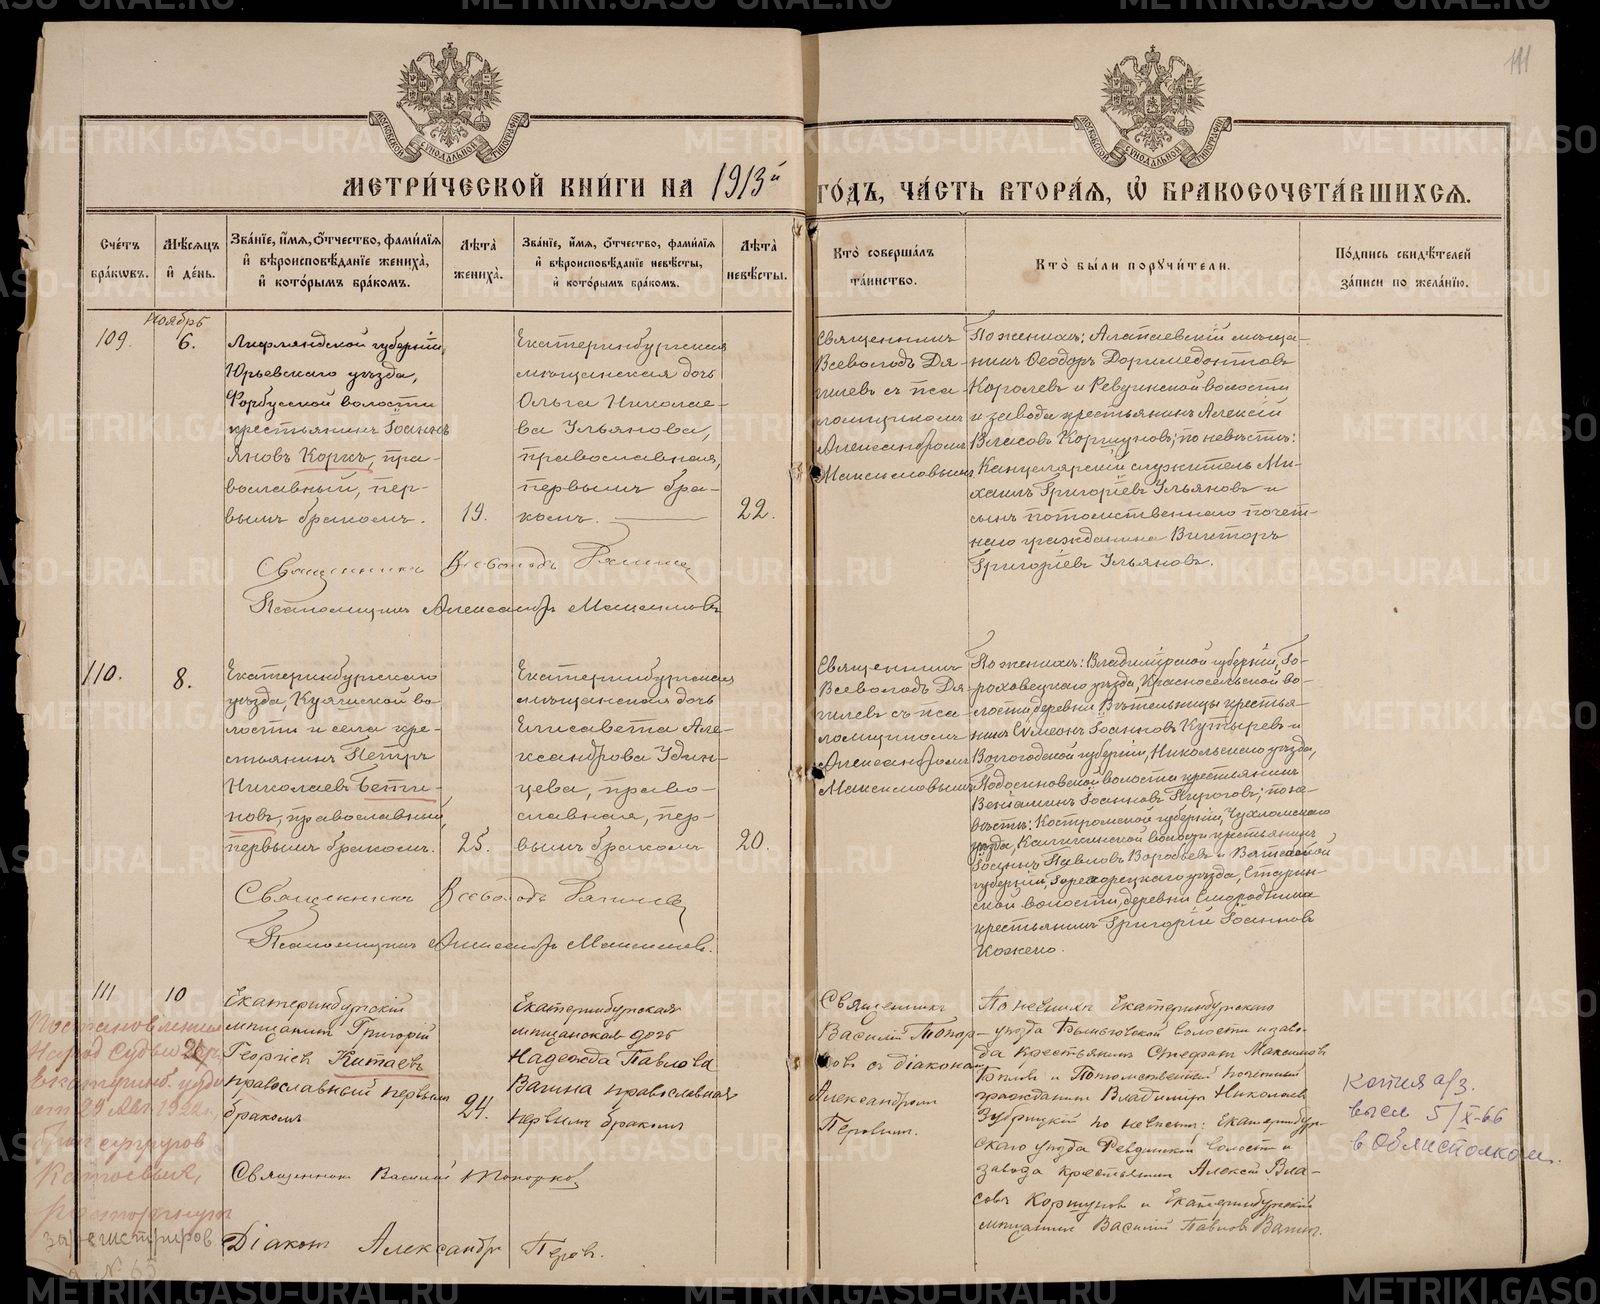 111
МЕТРИ́ЧЕСКОЙ КНИ́ГИ НА 1913й ГО́ДЪ, ЧА́СТЬ ВТОРА́Я, Ѡ҆ БРАКОСОЧЕТА́ВШИХСЯ.
МОСКОВСКОЙ СѴНОДАЛЬНОЙ ТИПОГРАФІИ
МОСКОВСКОЙ СѴНОДАЛЬНОЙ ТИПОГРАФІИ
Сче́тъ бра́кѡвъ.
Мѣ́сяцъ и҆ де́нь.
Зва́нїе, и҆́мя, ѻ҆́тчество, фами́лїя и҆ вѣроисповѣ́данїе жениха̀, и҆ кото́рымъ бра́комъ.
Лѣ́та жениха̀.
Зва́нїе, и҆́мя, ѻ҆́тчество, фами́лїя и҆ вѣроисповѣ́данїе невѣ́сты, и҆ кото́рымъ бра́комъ.
Лѣ́та невѣ́сты.
Кто̀ соверша́лъ та́инство.
Кто̀ бы́ли порꙋчи́тели.
По́дпись свидѣ́телей за́писи по жела́нїю.
Ноябрь
109.
6.
Лифляндской губерніи,
Юрьевскаго уѣзда,
Форбусской волости
крестьянинъ Іоаннъ
Яновъ Коркъ, пра-
вославный, пер-
вымъ бракомъ.
19.
Екатеринбургская
мѣщанская дочь
Ольга Николае-
ва Ульянова,
православная,
первымъ бра-
комъ.
22.
Священникъ
Всеволодъ Дя-
гилевъ съ пса-
ломщикомъ
Александромъ
Максимовымъ
По женихѣ: Алапаевскій мѣща-
нинъ Ѳеодоръ Доримедонтовъ
Королевъ и Ревдинской волости
и завода крестьянинъ Алексій
Власовъ Коршуновъ; по невѣстѣ:
Канцелярскій служитель Ми-
хаилъ Григоріевъ Ульяновъ и
сынъ потомственнаго почет-
наго гражданина Викторъ
Григоріевъ Ульяновъ.
Священникъ Всеволодъ Дягилевъ
Псаломщикъ Александръ Максимовъ
110.
8.
Екатеринбургскаго
уѣзда, Куяшской во-
лости и села кре-
стьянинъ Петръ
Николаевъ Бети-
новъ, православный,
первымъ бракомъ.
25.
Екатеринбургская
мѣщанская дочь
Елисавета Але-
ксандрова Удин-
цева, право-
славная, пер-
вымъ бракомъ
20.
Священникъ
Всеволодъ Дя-
гилевъ съ пса-
ломщикомъ
Александромъ
Максимовымъ
По женихѣ: Владимірской губерніи, Го-
роховецкаго уѣзда, Красносельской во-
лости, деревни крестья-
нинъ Сѵмеонъ Іоанновъ Кутыревъ и
Вологодской губерніи, Никольскаго уѣзда,
Подосиновской волости крестьянинъ
Веніаминъ Іоанновъ Пироговъ; по не-
вѣстѣ: Костромской губерніи, Чухломскаго
уѣзда, волости крестьянинъ
Іоаннъ Павловъ Воробьевъ и Вятской
губерніи, уѣзда,
волости, деревни
крестьянинъ Григорій Іоанновъ
Священникъ Всеволодъ Дягилевъ
Псаломщикъ Александръ Максимовъ.
111
10
Екатеринбургскій
мѣщанинъ Григорій
Георгіевъ Китаевъ
православный первымъ
бракомъ
24.
Екатеринбургская
мѣщанская дочь
Надежда Павлова
Вагина православная
первымъ бракомъ
Священникъ
Василій Топор-
ковъ съ діакономъ
Александромъ
Перовымъ.
По женихѣ Екатеринбургскаго
уѣзда волости и заво-
да крестьянинъ Стефанъ Максимовъ
и Потомственный почетный
гражданинъ Владиміръ Николаевъ
по невѣстѣ: Екатеринбург-
скаго уѣзда Ревдинской волости и
завода крестьянинъ Алексѣй Вла-
совъ Коршуновъ и Екатеринбургскій
мѣщанинъ Василій Павловъ Вагинъ.
Священникъ Василій Топорковъ
Діаконъ Александръ Перовъ.
Постановленіем
Народ Судьи
брак супругов
расторгнут
зарегистриров
копия а/з.
высл 5/X-66
в Облисполком.
METRIKI.GASO-URAL.RU